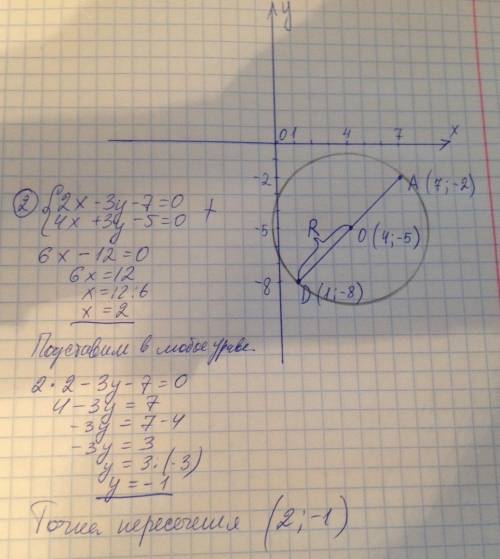 y
0 1 4 7 x
-2
A (7;-2)
-5
R
O (4;-5)
-8
D (1;-8)
2 { 2x - 3y - 7 = 0
4x + 3y - 5 = 0 +
6x - 12 = 0
6x = 12
x = 12:6
x = 2
Подставим в любое уравн.
2·2 - 3y - 7 = 0
4 - 3y = 7
-3y = 7 - 4
-3y = 3
y = 3:(-3)
y = -1
Точка пересечения (2;-1)